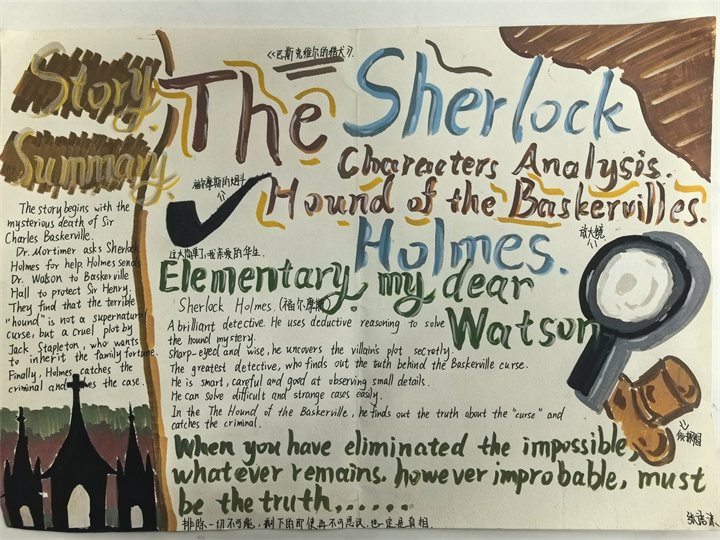 Story
Summary
The story begins with the
mysterious death of Sir
Charles Baskerville.
Dr. Mortimer asks Sherlock
Holmes for help. Holmes sends
Dr. Watson to Baskerville
Hall to protect Sir Henry.
They find that the terrible
"hound" is not a supernatural
curse, but a cruel plot by
Jack Stapleton, who wants
to inherit the family fortune.
Finally, Holmes catches the
criminal and the case.
《巴斯克维尔的猎犬》
The Sherlock
Characters Analysis.
福尔摩斯的烟斗
Hound of the Baskervilles.
放大镜
Holmes.
这太简单了,我亲爱的华生.
Elementary, my dear
Watson
Sherlock Holmes. (福尔摩斯)
A brilliant detective. He uses deductive reasoning to solve
the hound mystery.
Sharp-eyed and wise, he uncovers the villain's plot secretly.
The greatest detective, who finds out the truth behind the Baskerville curse.
He is smart, careful and good at observing small details.
He can solve difficult and strange cases easily.
In the The Hound of the Baskerville, he finds out the truth about the "curse" and
catches the criminal.
When you have eliminated the impossible,
whatever remains. however improbable, must
be the truth......
排除一切不可能,剩下的即使再不可思议,也一定是真相